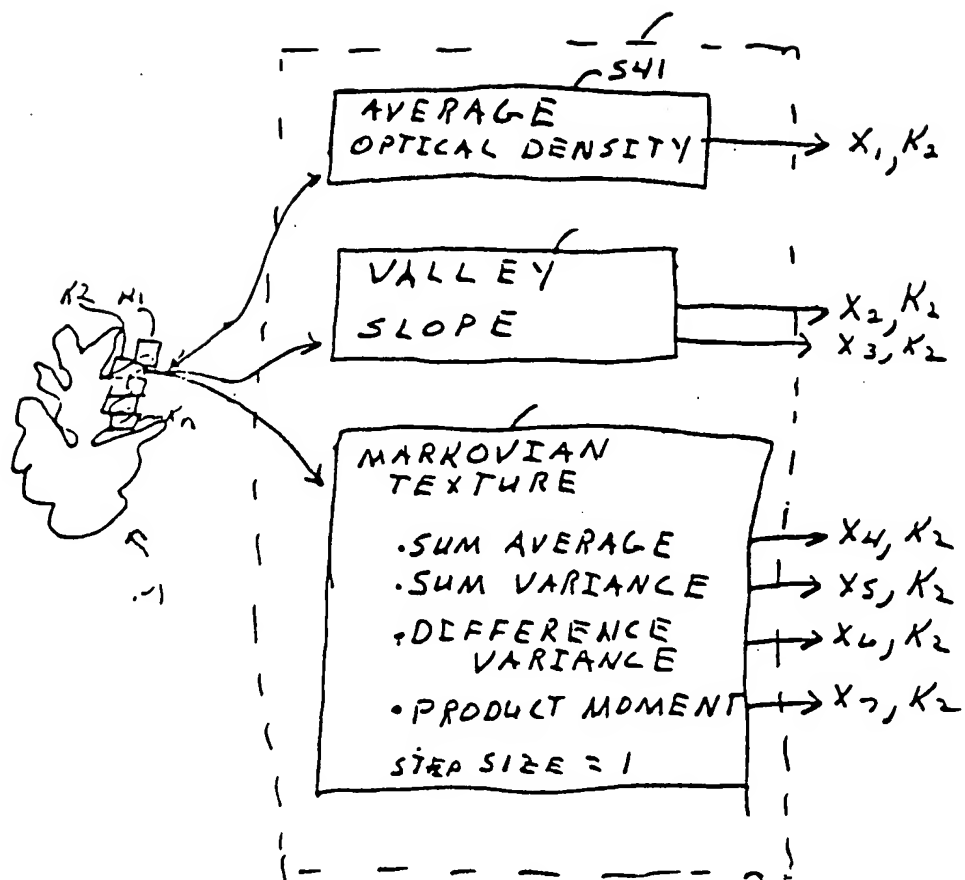 S41
AVERAGE
OPTICAL DENSITY
X1, K2
VALLEY
SLOPE
X2, K2
X3, K2
K2
MARKOVIAN
TEXTURE
·SUM AVERAGE
X4, K2
·SUM VARIANCE
X5, K2
·DIFFERENCE
VARIANCE
·PRODUCT MOMENT
STEP SIZE = 1